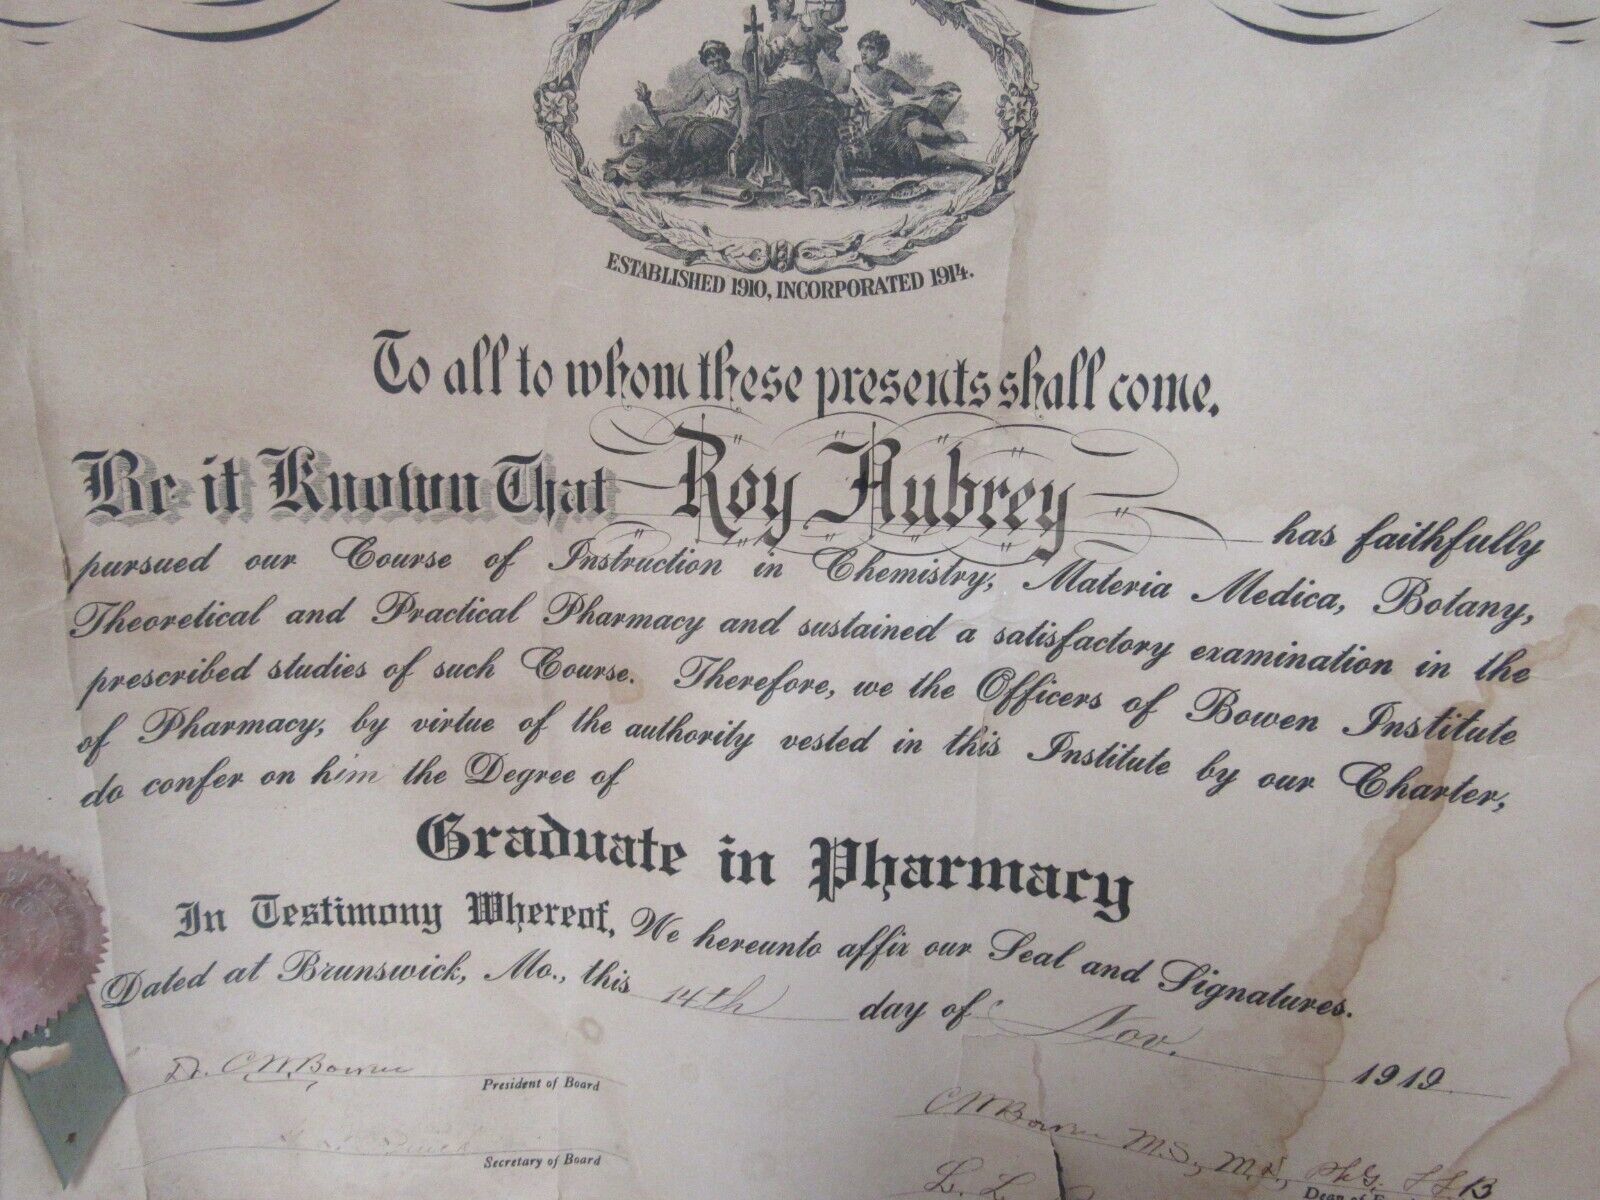 ESTABLISHED 1910, INCORPORATED 1914.
To all to whom these presents shall come,
Be it Known That Roy Aubrey has faithfully
pursued our Course of Instruction in Chemistry, Materia Medica, Botany,
Theoretical and Practical Pharmacy and sustained a satisfactory examination in the
prescribed studies of such Course. Therefore, we the Officers of Bowen Institute
of Pharmacy, by virtue of the authority vested in this Institute by our Charter,
do confer on him the Degree of
Graduate in Pharmacy
In Testimony Whereof, We hereunto affix our Seal and Signatures.
Dated at Brunswick, Mo., this 14th day of Nov. 1919
Dr. C. W. Bowen
President of Board
Secretary of Board
C W Bowen M.S., M.D., Ph.G. LLB
Dean of
L. L.